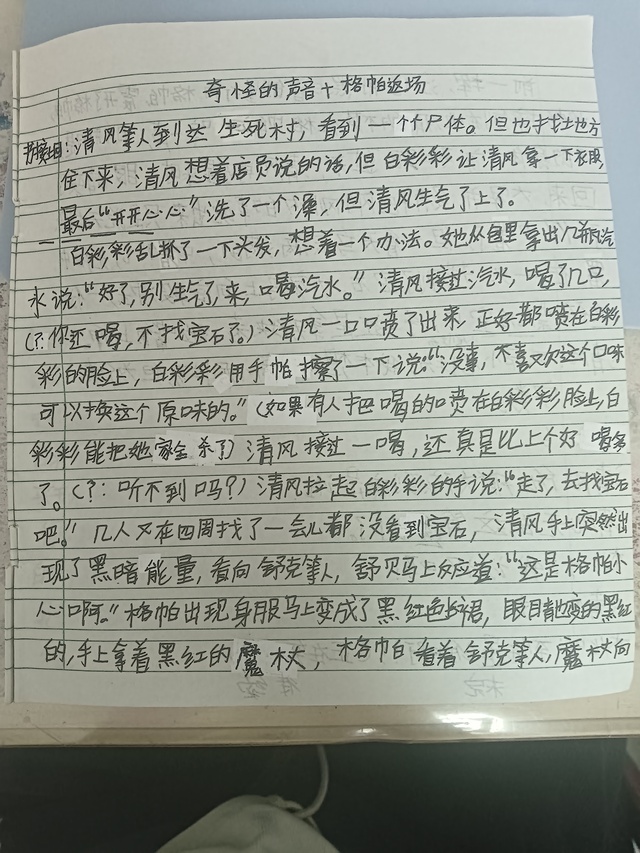 奇怪的声音+格帕返场
书接上回:清风等人到达生死村,看到一个个尸体。但也找土地方
住下来,清风想着店员说的话,但白彩彩让清风拿一下衣服,
最后“开开心心”洗了一个澡,但清风生气了上了。
白彩彩乱抓了一下头发,想着一个办法。她从包里拿出几瓶汽
水说:“好了,别生气了,来,喝汽水。”清风接过汽水,喝了几口,
(?:你还喝,不找宝石了。)清风一口喷了出来,正好都喷在白彩
彩的脸上,白彩彩用手帕擦了一下说:“没事,不喜欢这个口味
可以换这个原味的。”(如果有人把喝的喷在白彩彩脸上,白
彩彩能把她家全杀了)清风接过一喝,还真是比上个好喝多
了。(?:听不到吗?)清风拉起白彩彩的手说:“走了,去找宝石
吧。”几人又在四周找了一会儿都没看到宝石,清风手上突然出
现了黑暗能量,看向舒克等人,舒贝马上反应道:“这是格帕小
心啊。”格帕出现身服马上变成了黑红色长裙,眼目都变的黑红
的,手上拿着黑红的魔杖,格帕看着舒克等人,魔杖向